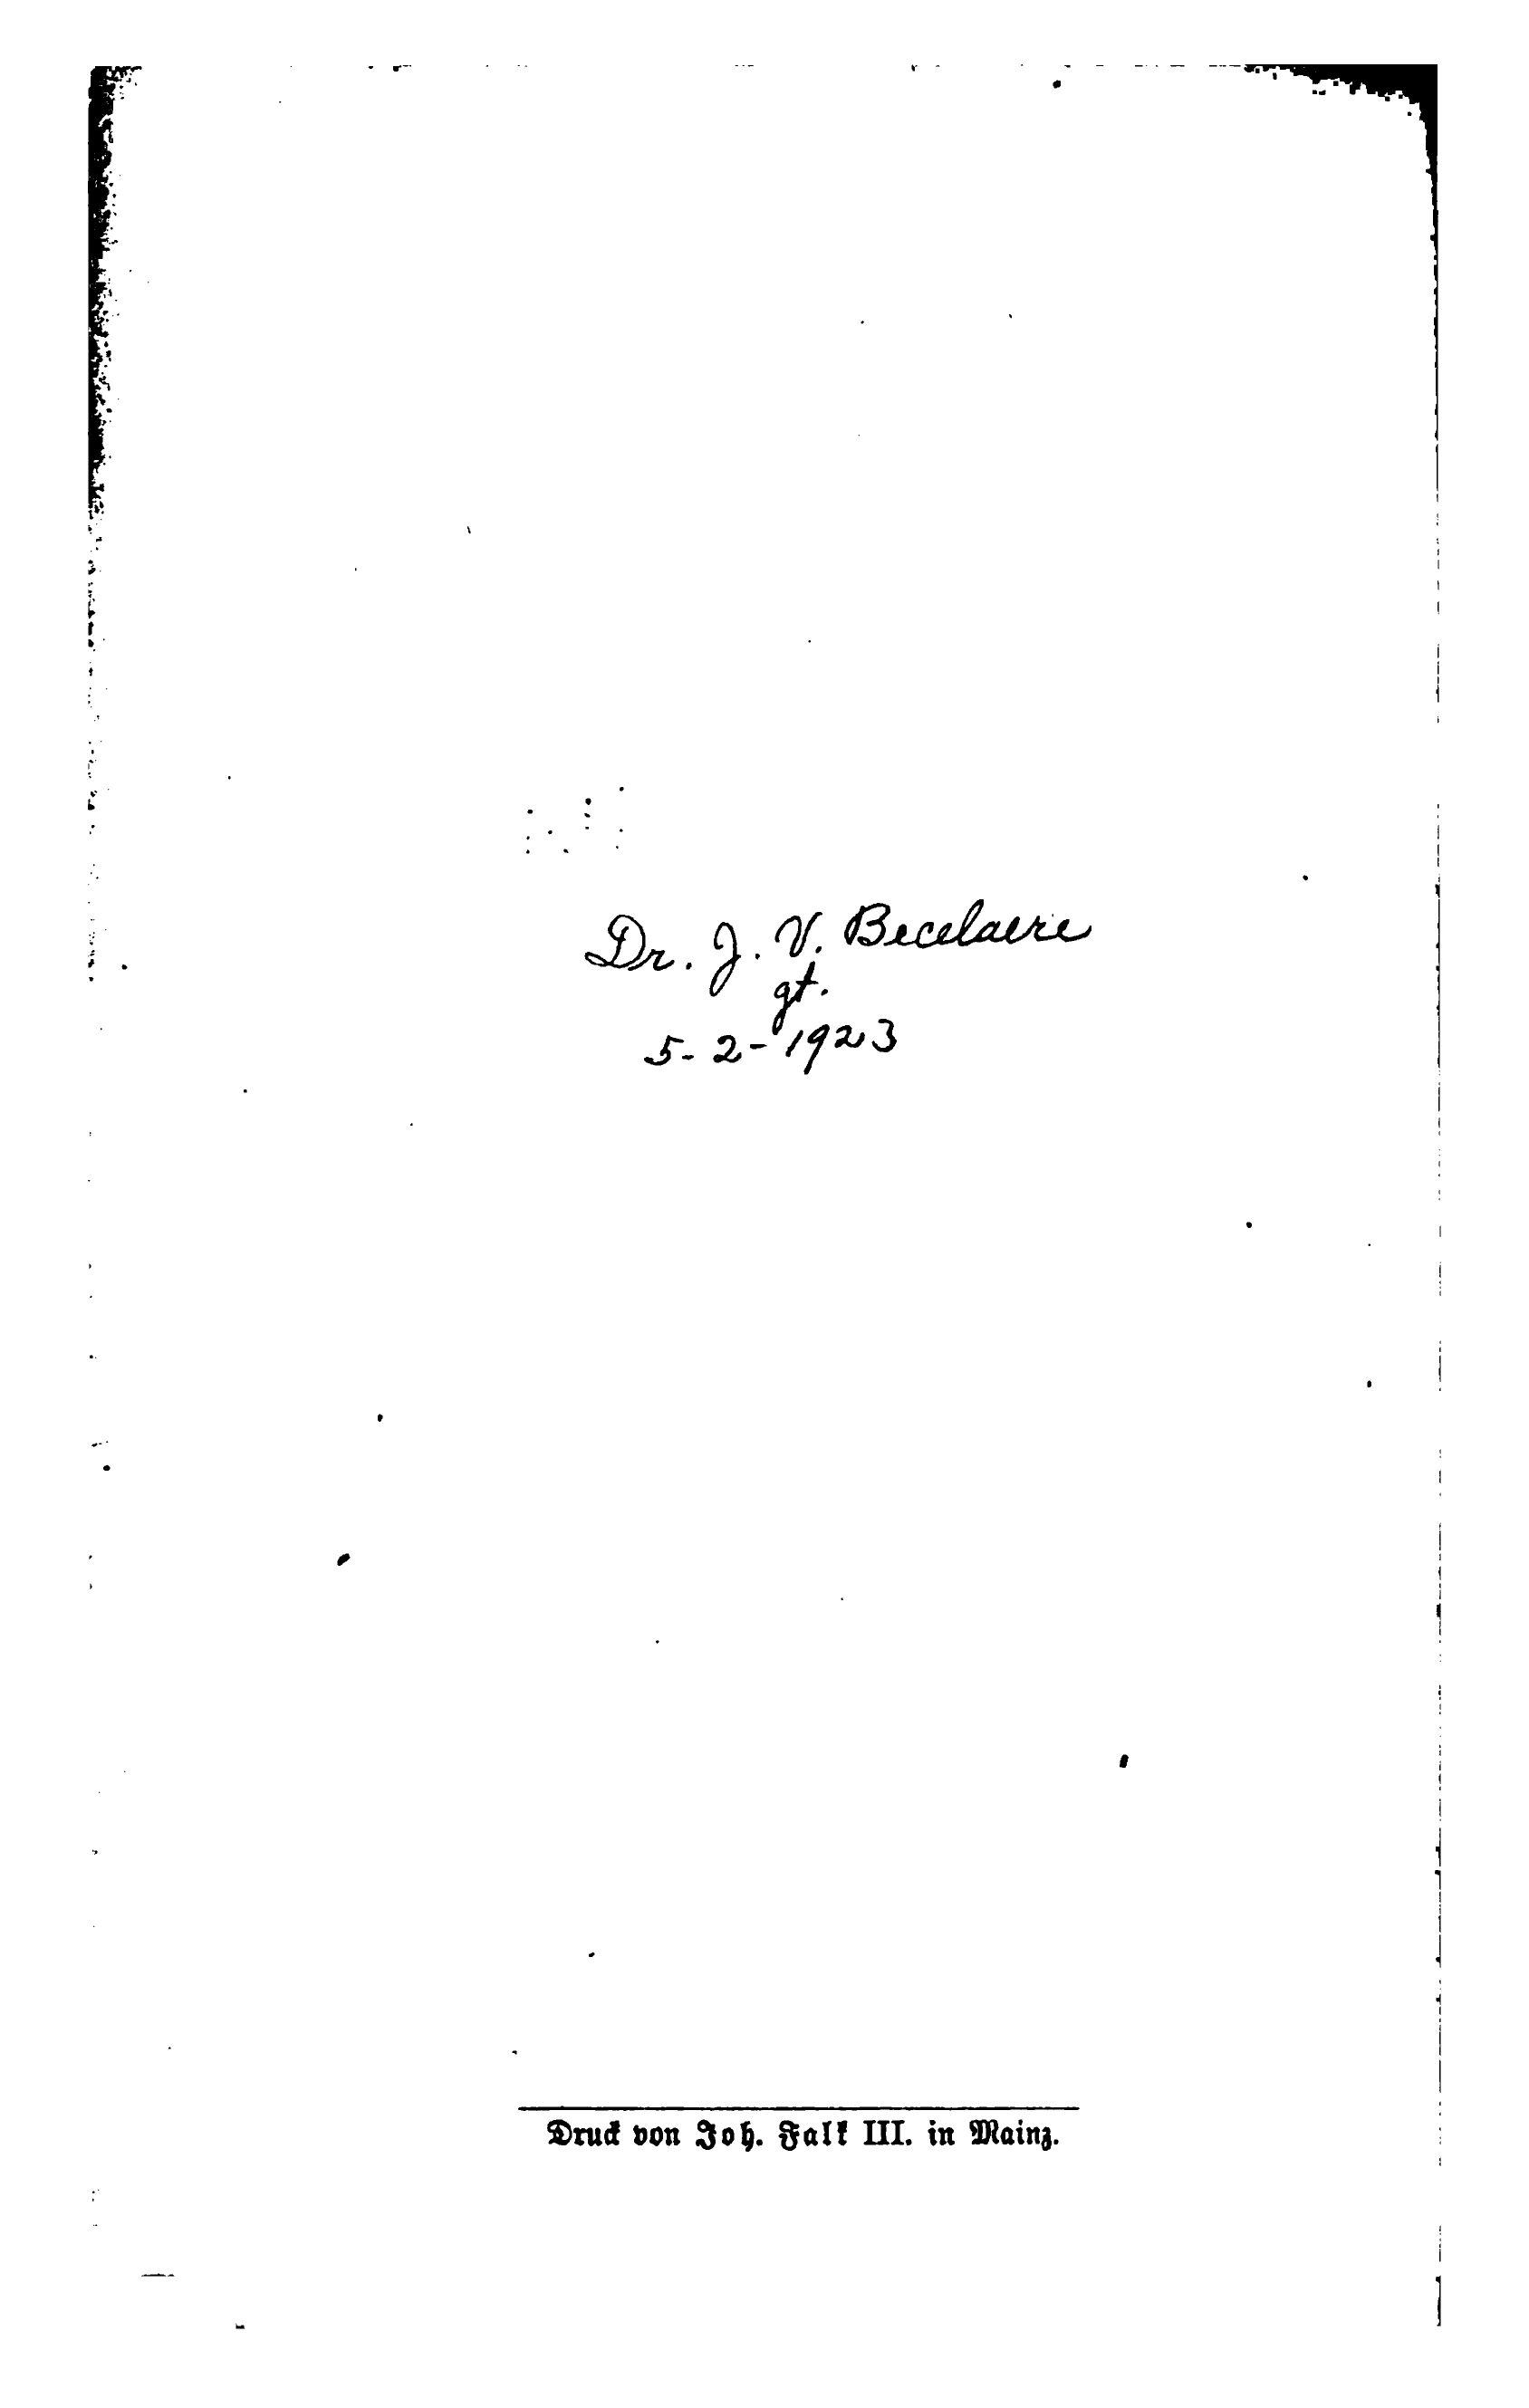 Dr. J. V. Becelaere
gt.
5-2-1923
Druck von Joh. Falk III. in Mainz.